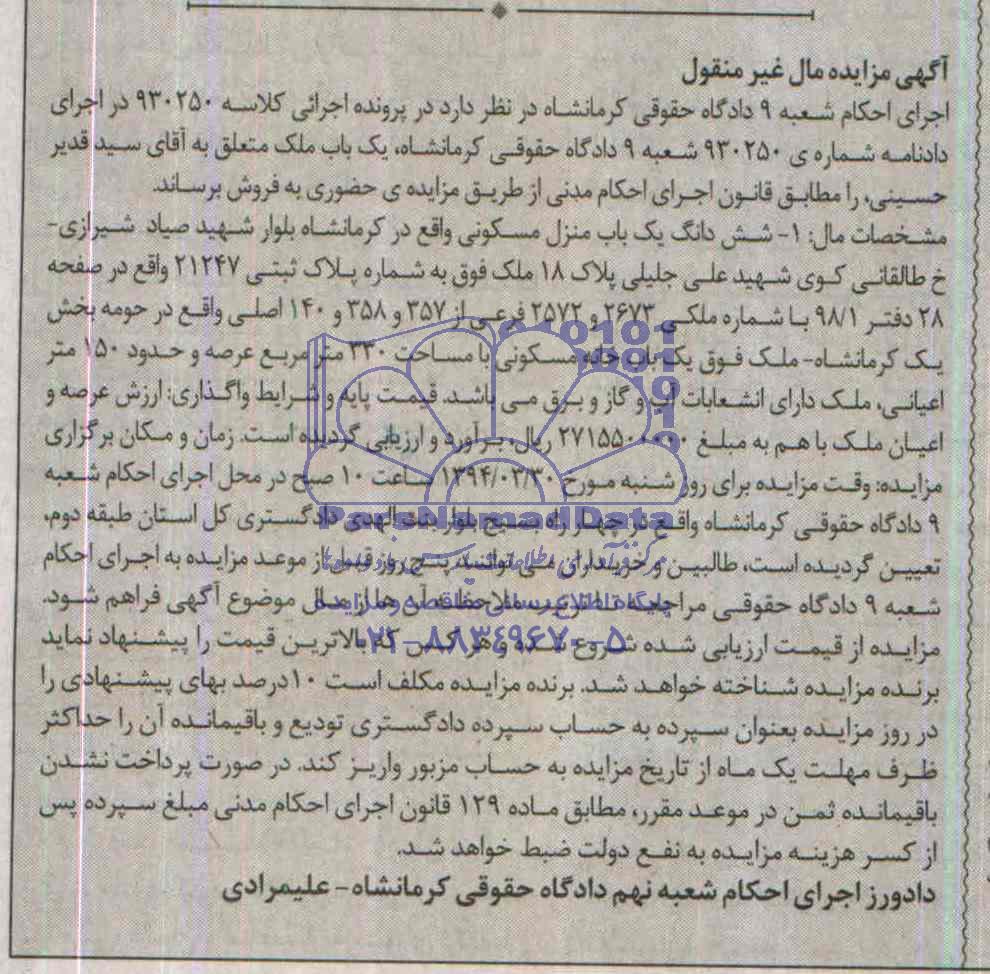 آگهی مزایده مال غیر منقول
اجرای احکام شعبه ۹ دادگاه حقوقی کرمانشاه در نظر دارد در پرونده اجرائی کلاسه ۹۳۰۲۵۰ در اجرای
دادنامه شماره ی ۹۳۰۲۵۰ شعبه ۹ دادگاه حقوقی کرمانشاه، یک باب ملک متعلق به آقای سید قدیر
حسینی، را مطابق قانون اجرای احکام مدنی از طریق مزایده ی حضوری به فروش برساند.
مشخصات مال: ۱- شش دانگ یک باب منزل مسکونی واقع در کرمانشاه بلوار شهید صیاد شیرازی-
خ طالقانی کوی شهید علی جلیلی پلاک ۱۸ ملک فوق به شماره پلاک ثبتی ۲۱۲۴۷ واقع در صفحه
۲۸ دفتر ۹۸/۱ با شماره ملکی ۲۶۷۳ و ۲۵۷۲ فرعی از ۳۵۷ و ۳۵۸ و ۱۴۰ اصلی واقع در حومه بخش
یک کرمانشاه- ملک فوق یک باب خانه مسکونی با مساحت ۳۳۰ متر مربع عرصه و حدود ۱۵۰ متر
اعیانی، ملک دارای انشعابات آب و گاز و برق می باشد. قیمت پایه و شرایط واگذاری: ارزش عرصه و
اعیان ملک با هم به مبلغ ریال برآورد و ارزیابی گردیده است. زمان و مکان برگزاری
مزایده: وقت مزایده برای روز شنبه مورخ ۱۳۹۴/۰۳/۳۰ ساعت ۱۰ صبح در محل اجرای احکام شعبه
۹ دادگاه حقوقی کرمانشاه واقع در چهار راه بسیج بلوار بنت الهدی دادگستری کل استان طبقه دوم،
تعیین گردیده است، طالبین و خریداران می توانند پنج روز قبل از موعد مزایده به اجرای احکام
شعبه ۹ دادگاه حقوقی مراجعه تا ترتیب ملاحظه آن ها از مال موضوع آگهی فراهم شود.
مزایده از قیمت ارزیابی شده شروع شده و هر کس که بالاترین قیمت را پیشنهاد نماید
برنده مزایده شناخته خواهد شد. برنده مزایده مکلف است ۱۰درصد بهای پیشنهادی را
در روز مزایده بعنوان سپرده به حساب سپرده دادگستری تودیع و باقیمانده آن را حداکثر
ظرف مهلت یک ماه از تاریخ مزایده به حساب مزبور واریز کند. در صورت پرداخت نشدن
باقیمانده ثمن در موعد مقرر، مطابق ماده ۱۲۹ قانون اجرای احکام مدنی مبلغ سپرده پس
از کسر هزینه مزایده به نفع دولت ضبط خواهد شد.
دادورز اجرای احکام شعبه نهم دادگاه حقوقی کرمانشاه- علیمرادی
ParsNamadData
پایگاه اطلاع رسانی مناقصه و مزایده
۰۲۱-۸۸۳۴۹۶۷۰-۵